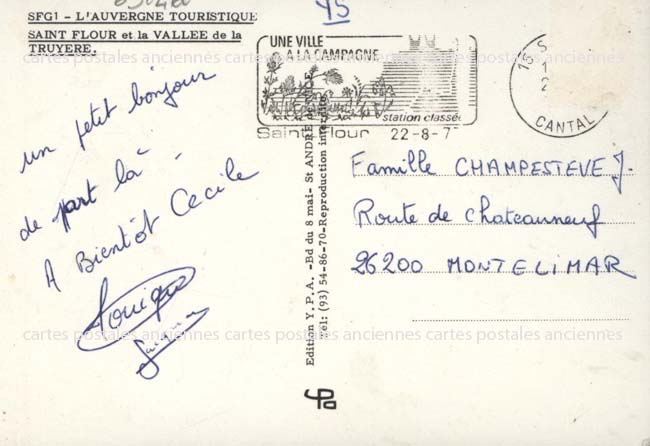 SFG1 - L'AUVERGNE TOURISTIQUE
SAINT FLOUR et la VALLEE de la
TRUYERE.
45
UNE VILLE
A LA CAMPAGNE
station classée
Saint Flour 22-8-7
15 S
CANTAL
un petit bonjour
de part là
A Bientôt Cécile
Edition Y.P.A. -Bd du 8 mai- St ANDRE
Tél: (93) 54-86-70-Reproduction interdite
Famille CHAMPESTEVE J.
Route de Chateauneuf
26200 MONTELIMAR
cartes postales anciennes cartes postales anciennes cartes postales anciennes
cartes postales anciennes cartes postales anciennes cartes postales anciennes